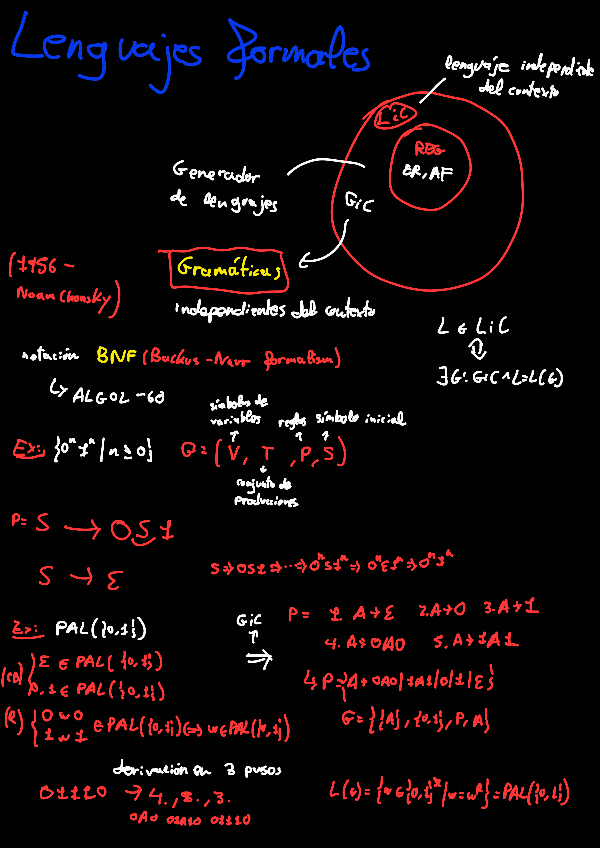 Lenguajes formales
lenguaje independiente
del contexto
LiC
REG
ER, AF
Generador
de lenguajes
GiC
(1956 -
Noam Chomsky)
Gramáticas
independientes del contexto
L ∈ LiC
⇕
∃G: GiC ∧ L=L(G)
notación BNF (Backus-Naur formalism)
↳ ALGOL-60
símbolos de
variables reglas símbolo inicial
Ex: {0ⁿ1ⁿ | n ≥ 0} G = (V, T, P, S)
conjunto de
producciones
P = S → 0S1
S → ε
S ⇒ 0S1 ⇒ ... ⇒ 0ⁿS1ⁿ ⇒ 0ⁿε1ⁿ ⇒ 0ⁿ1ⁿ
Ex: PAL({0,1})
GiC
⇒
P = 1. A → ε 2. A → 0 3. A → 1
4. A → 0A0 5. A → 1A1
(CB) { ε ∈ PAL({0,1})
0,1 ∈ PAL({0,1})
↳ P = {A → 0A0|1A1|0|1|ε}
(R) { 0w0
1w1 ∈ PAL({0,1}) ⇔ w ∈ PAL({0,1})
G = {{A}, {0,1}, P, A}
derivación en 3 pasos
01110 → 4., 5., 3.
0A0 01A10 01110
L(G) = {w ∈ {0,1}* | w = wᴿ} = PAL({0,1})